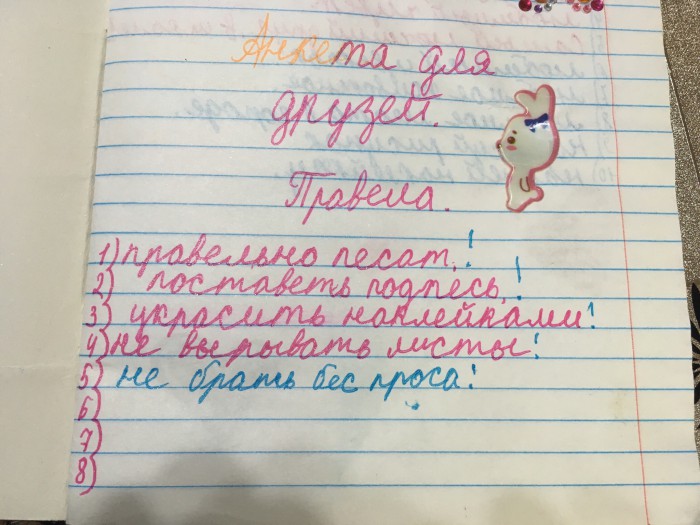 Анкета для
друзей.
Правела.
1) правельно песат,!
2) поставеть подпесь,!
3) украсить наклейками!
4) не вырывать листы!
5) не брать бес проса!
6)
7)
8)